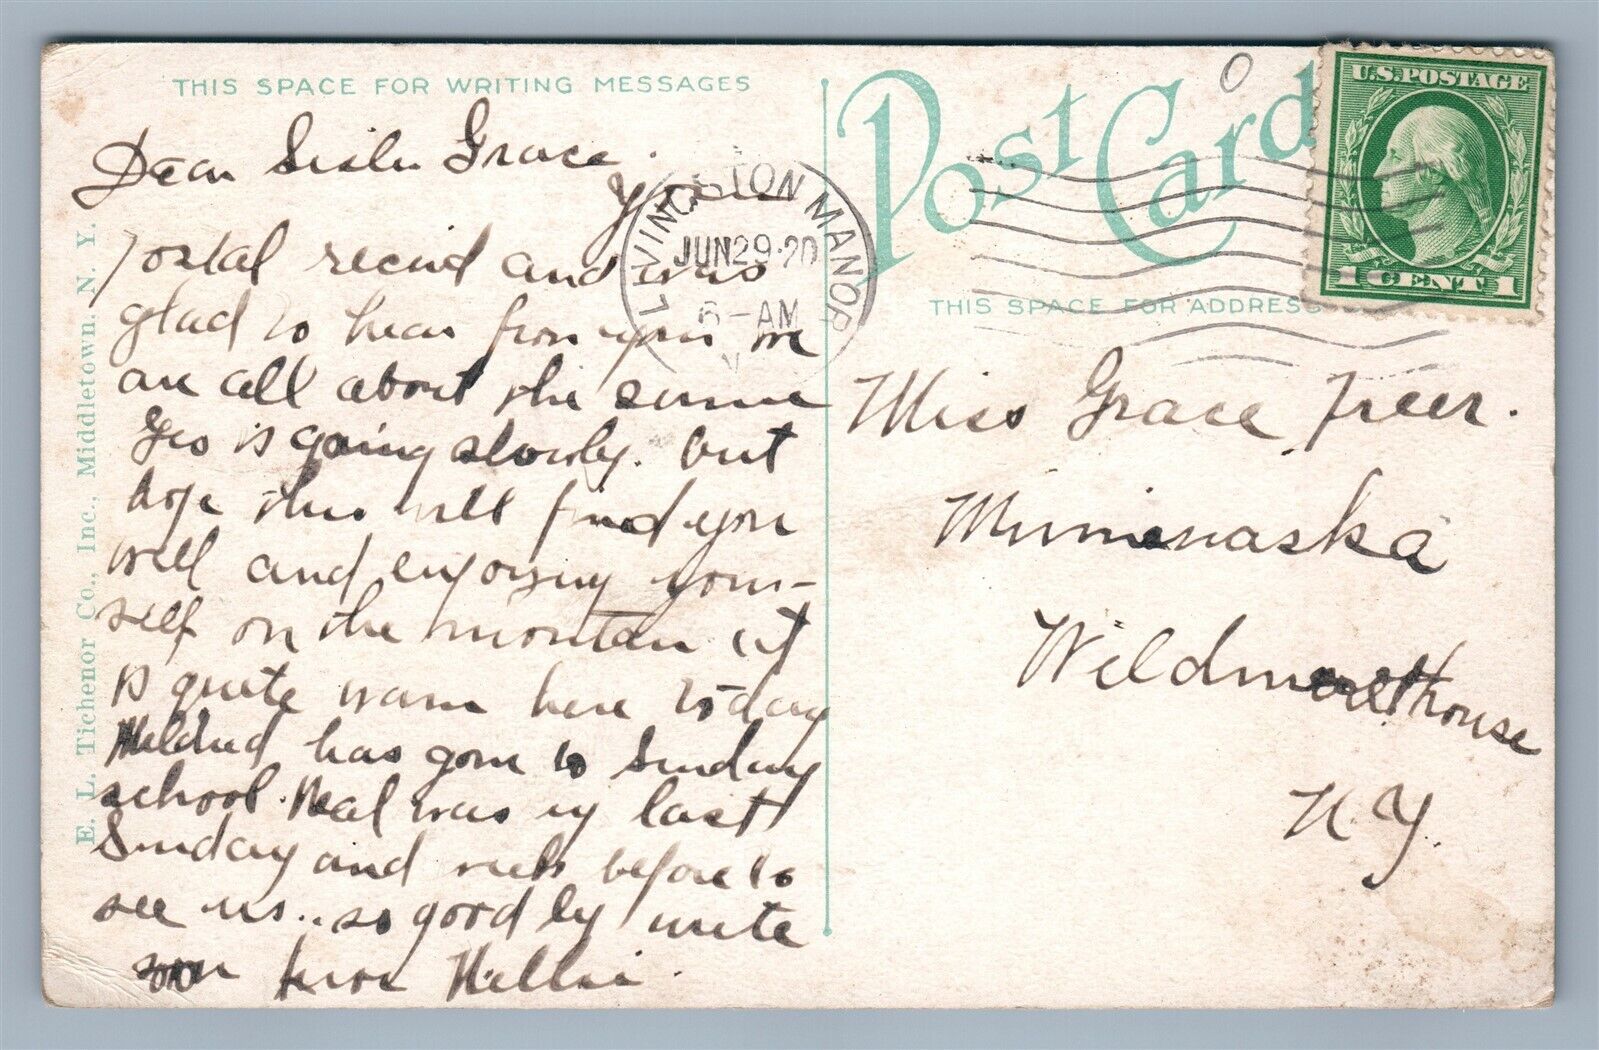 THIS SPACE FOR WRITING MESSAGES
Dear Sister Grace.
Your
postal recied and was
glad to hear from you we
are all about the same
Geo is going slowly. but
hope this will find you
well and enjoying your-
self on the mountain it
is quite warm here to day
Mildred has gone to Sunday
school. Neal was up last
Sunday and week before to
see us.. so good by write
soon from Nellie.
E. L. Tichenor Co., Inc., Middletown, N. Y.
LIVINGSTON MANOR
JUN 29 20
6-AM
N.Y.
Post Card
U.S. POSTAGE
1 CENT 1
THIS SPACE FOR ADDRESS
Miss Grace Freer.
Minnenaska
Wildmere House
N.Y.